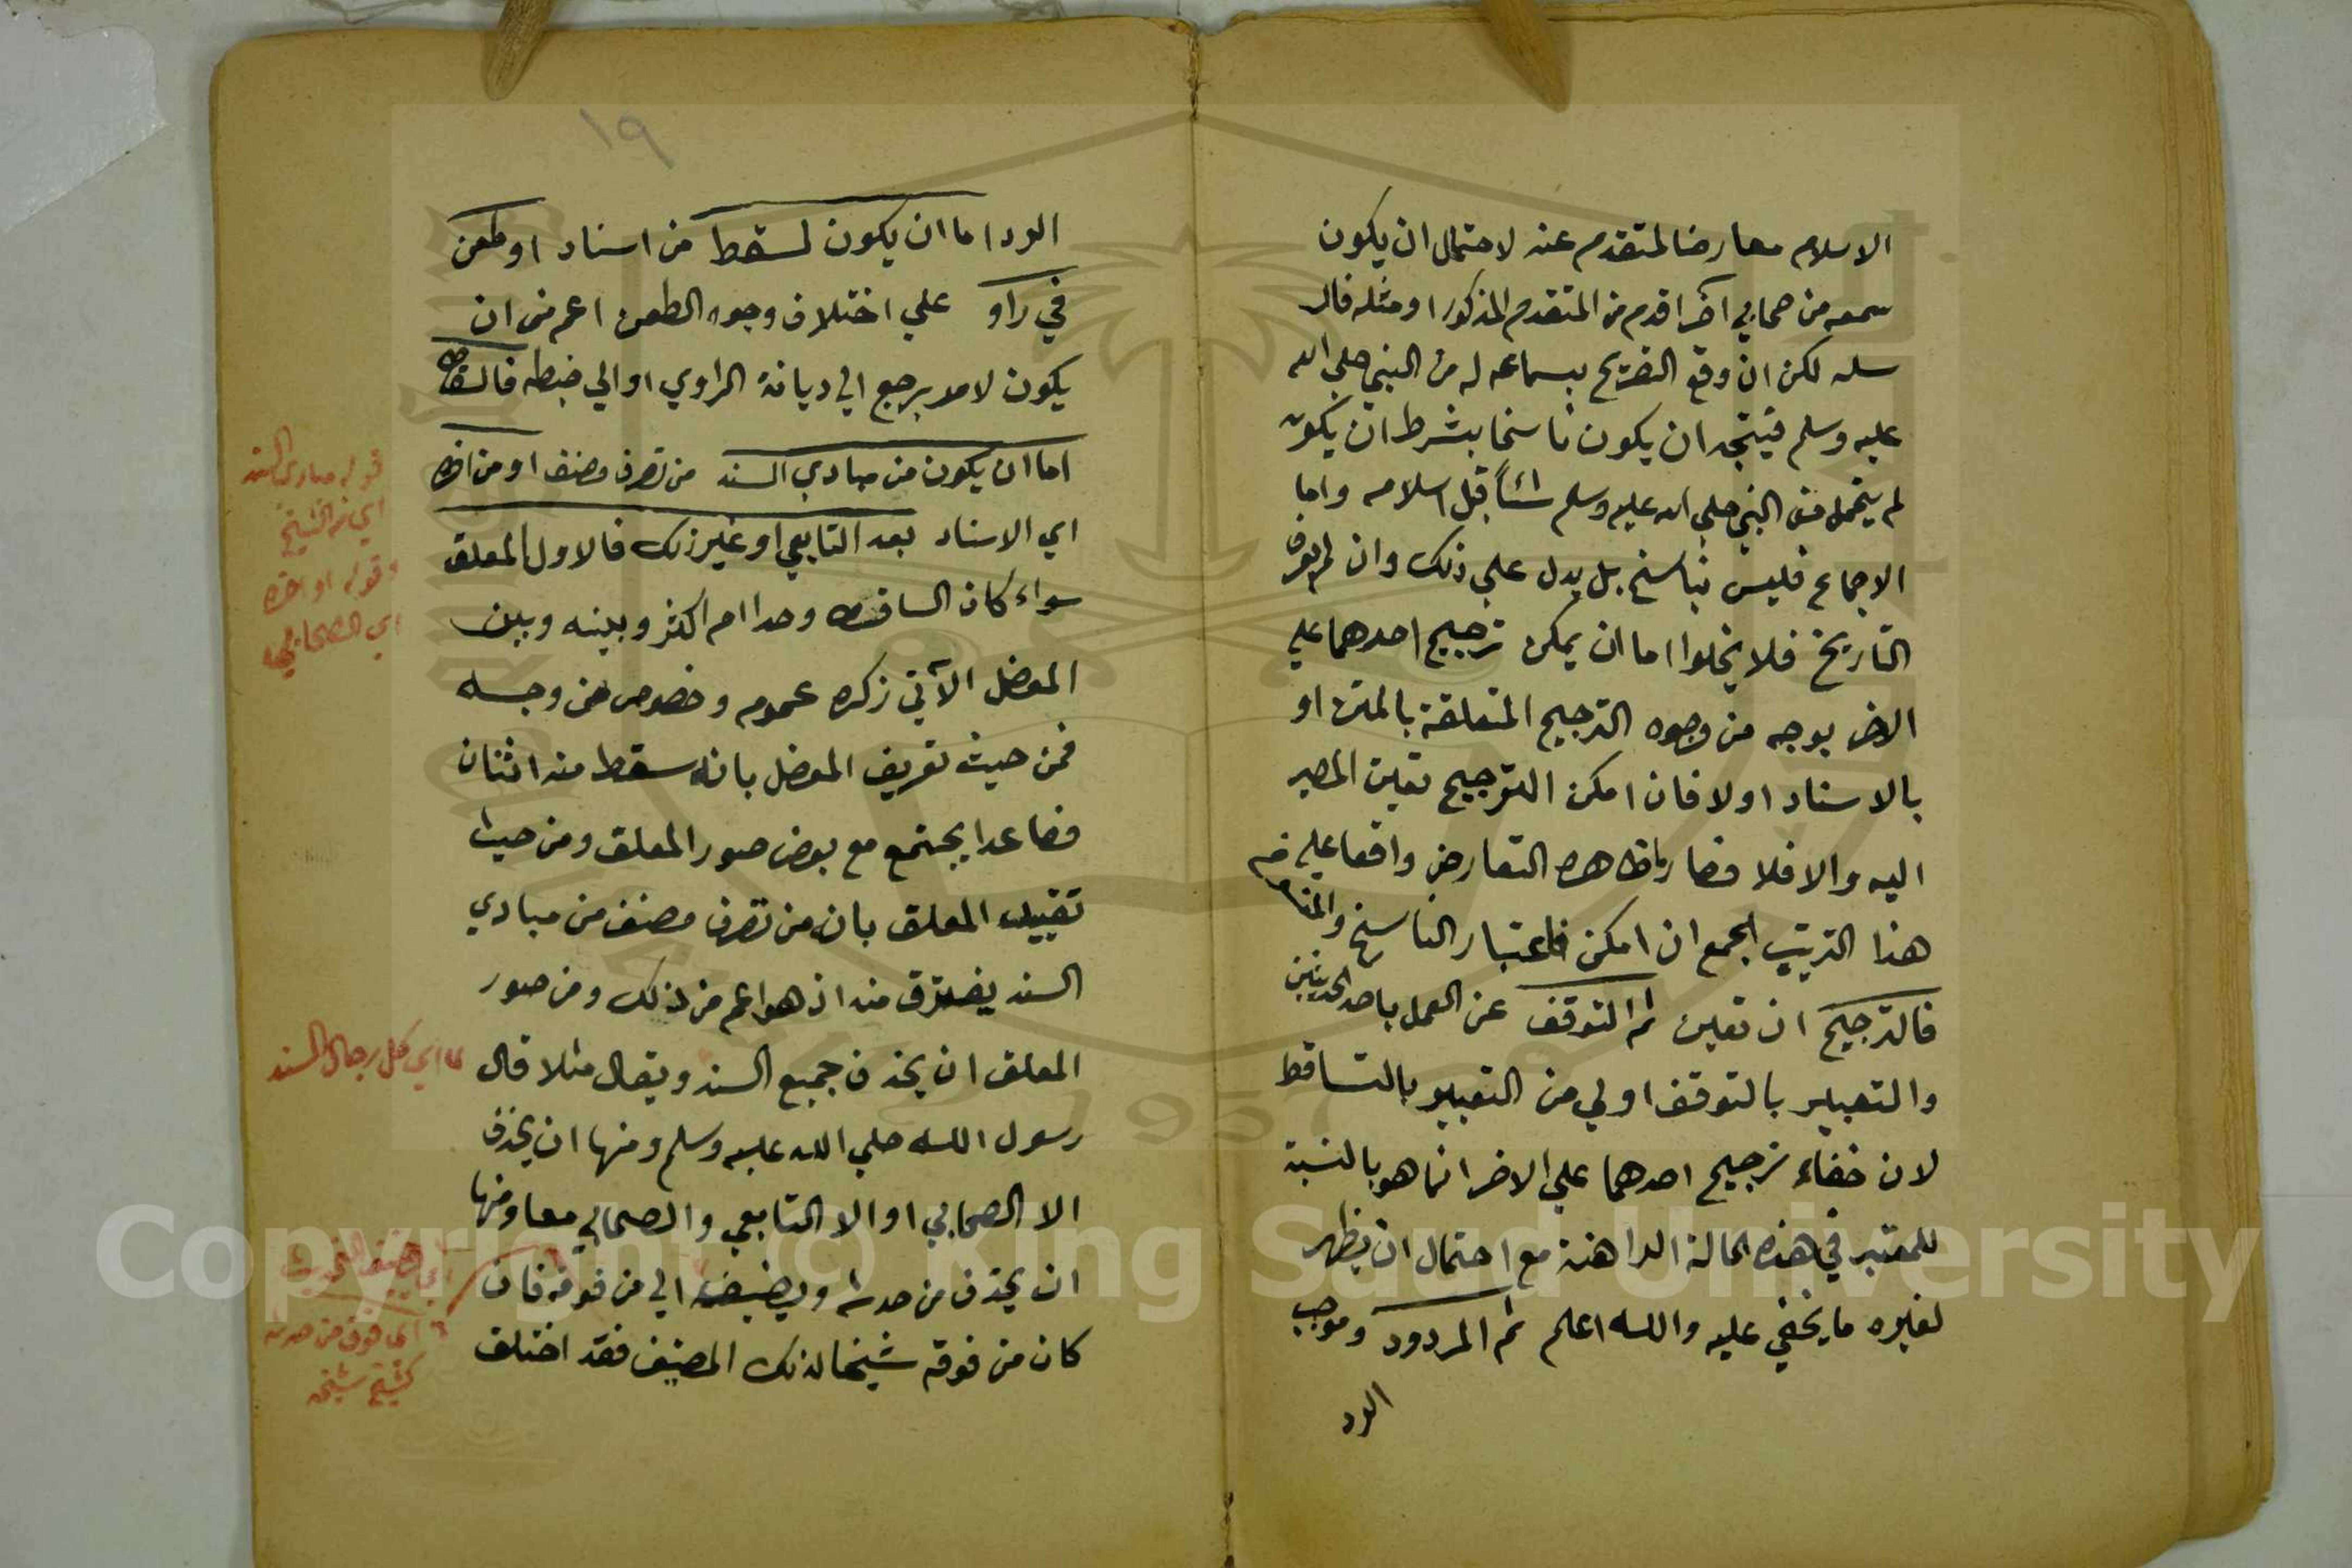 الاسلام معارضا لمتقدم عنه لاحتمال ان يكون
سمعه من صحابي آخر اقدم من المتقدم المذكور او مثله فار
سله لكن ان وقع التصريح بسماعه له من النبي صلى الله
عليه وسلم فيتجه ان يكون ناسخا بشرط ان يكون
لم يتحمل من النبي صلي الله عليه وسلم شيأ قبل اسلامه واما
الاجماع فليس بناسخ بل يدل علي ذلك وان لم يعرف
التاريخ فلا يخلوا اما ان يمكن ترجيح احدهما علي
الاخر بوجه من وجوه الترجيح المتعلقة بالمتن او
بالاسناد اولا فان امكن الترجيح تعين المصير
اليه والا فلا فصار ما ظاهره التعارض واقعا علي
هذا الترتيب الجمع ان امكن فاعتبار الناسخ والمنسوخ
فالترجيح ان تعين ثم التوقف عن العمل باحد الحديثين
والتعبير بالتوقف اولي من التعبير بالتساقط
لان خفاء ترجيح احدهما علي الاخر انما هو بالنسبة
للمعتبر في هذه الحالة الراهنة مع احتمال ان يظهر
لغيره ما يخفي عليه والله اعلم ثم المردود وموجب
الرد
١٩
الرد اما ان يكون لسقط من اسناد او طعن
في راو علي اختلاف وجوه الطعن اعم من ان
يكون لامر يرجع الي ديانة الراوي او الي ضبطه فالسقط
اما ان يكون من مبادي السند من تصرف مصنف او من اخره
اي الاسناد بعد التابعي او غير ذلك فالاول المعلق
سواء كان الساقط وحدا ام اكثر وبينه وبين
المعضل الآتي ذكره عموم وخصوص من وجه
فمن حيث تعريف المعضل بانه سقط منه اثنان
فصاعدا يجتمع مع بعض صور المعلق ومن حيث
تقييد المعلق بانه من تصرف مصنف من مبادي
السند يفترق منه اذ هو اعم من ذلك ومن صور
المعلق ان يحذف جميع السند ويقال مثلا قال
رسول الله صلي الله عليه وسلم ومنها ان يحذف
الا الصحابي او الا التابعي والصحابي معا ومنها
ان يحذف من حدثه ويضيفه الي من فوقه فان
كان من فوقه شيخا لذلك المصنف فقد اختلف
قوله مبادي السند
اي من الشيخ
وقوله او اخره
اي الصحابي
اي كل رجال السند
اي يضيف الحديث
اي فوق من حدثه
كشيخ شيخه
Copyright © King Saud University
1957